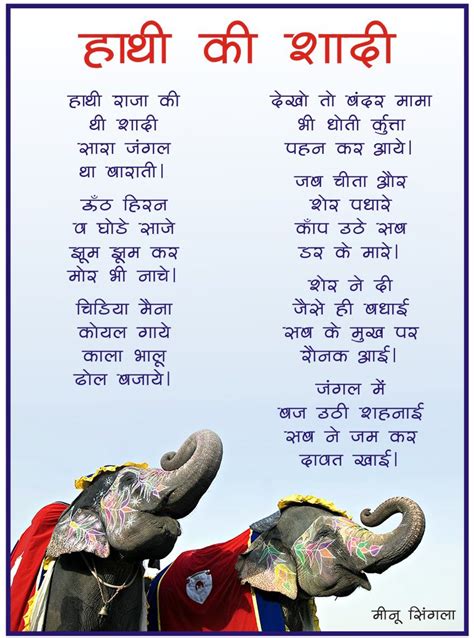 हाथी की शादी
हाथी राजा की
थी शादी
सारा जंगल
था बाराती।
ऊँठ हिरन
व घोडे साजे
झूम झूम कर
मोर भी नाचे।
चिडिया मैना
कोयल गाये
काला भालू
ढोल बजाये।
देखो तो बंदर मामा
भी धोती कुर्त्ता
पहन कर आये।
जब चीता और
शेर पधारे
काँप उठे सब
डर के मारे।
शेर ने दी
जैसे ही बधाई
सब के मुख पर
रौनक आई।
जंगल में
बज उठी शहनाई
सब ने जम कर
दावत खाई।
मीनू सिंगला